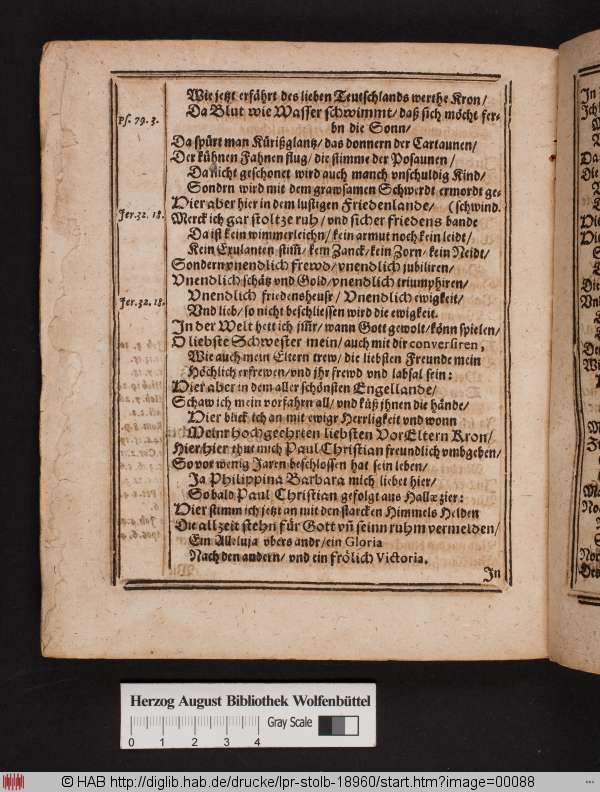 Wie jetzt erfährt des lieben Teutschlands werthe Kron/
Da Blut wie Wasser schwimmt/ daß sich möcht fer-
bn die Sonn/
Ps. 79. 3.
Da spürt man Kürißglantz/ das donnern der Cartaunen/
Der kühnen Fahnen flug/ die stimme der Posaunen/
Da nicht geschonet wird auch manch vnschuldig Kind/
Sondrn wird mit dem grawsamen Schwerdt ermordt ge-
Hier aber hier in dem lustigen Friedenlande/ (schwind.
Jer. 32. 18.
Merck ich gar stoltze ruh/ und sicher friedens bande
Da ist kein wimmerleichn/ kein armut noch kein leidt/
Kein Exulanten stim̃/ kein Zanck/ kein Zorn/ kein Neidt/
Sondern vnendlich frewd/ vnendlich jubiliren/
Vnendlich schätz und Gold/ vnendlich triumphiren/
Vnendlich friedensheusr/ Vnendlich ewigkeit/
Jer. 32. 18.
Vnd lieb/ so nicht beschliessen wird die ewigkeit.
In der Welt hett ich zwar/ wann Gott gewolt/ könn spielen/
O liebste Schwester mein/ auch mit dir conversiren,
Wie auch mein Eltern trew/ die liebsten Freunde mein
Höchlich erfrewen/ und jhr frewd und labsal sein:
Hier aber in dem aller schönsten Engellande/
Schaw ich mein vorfahrn all/ vnd küß jhnen die hände/
Hier blick ich an mit ewigr Herrligkeit vnd wonn
Meinr hochgeehrten liebsten VorEltern Kron/
Hier hier thut mich Paul Christian freundlich vmbgeben/
So vor wenig Jaren beschlossen hat sein leben/
Ja Philippina Barbara mich liebet hier/
Sobald Paul Christian gefolgt aus Hallæ zier:
Hier stimm ich jetzt an mit den starcken Himmels Helden
Die all zeit stehn für Gott vñ seinn ruhm vermelden/
Ein Alleluja übers andr/ ein Gloria
Nach den andern/ und ein frölich Victoria,
In
Herzog August Bibliothek Wolfenbüttel
Gray Scale
0 1 2 3 4
© HAB http://diglib.hab.de/drucke/lpr-stolb-18960/start.htm?image=00088